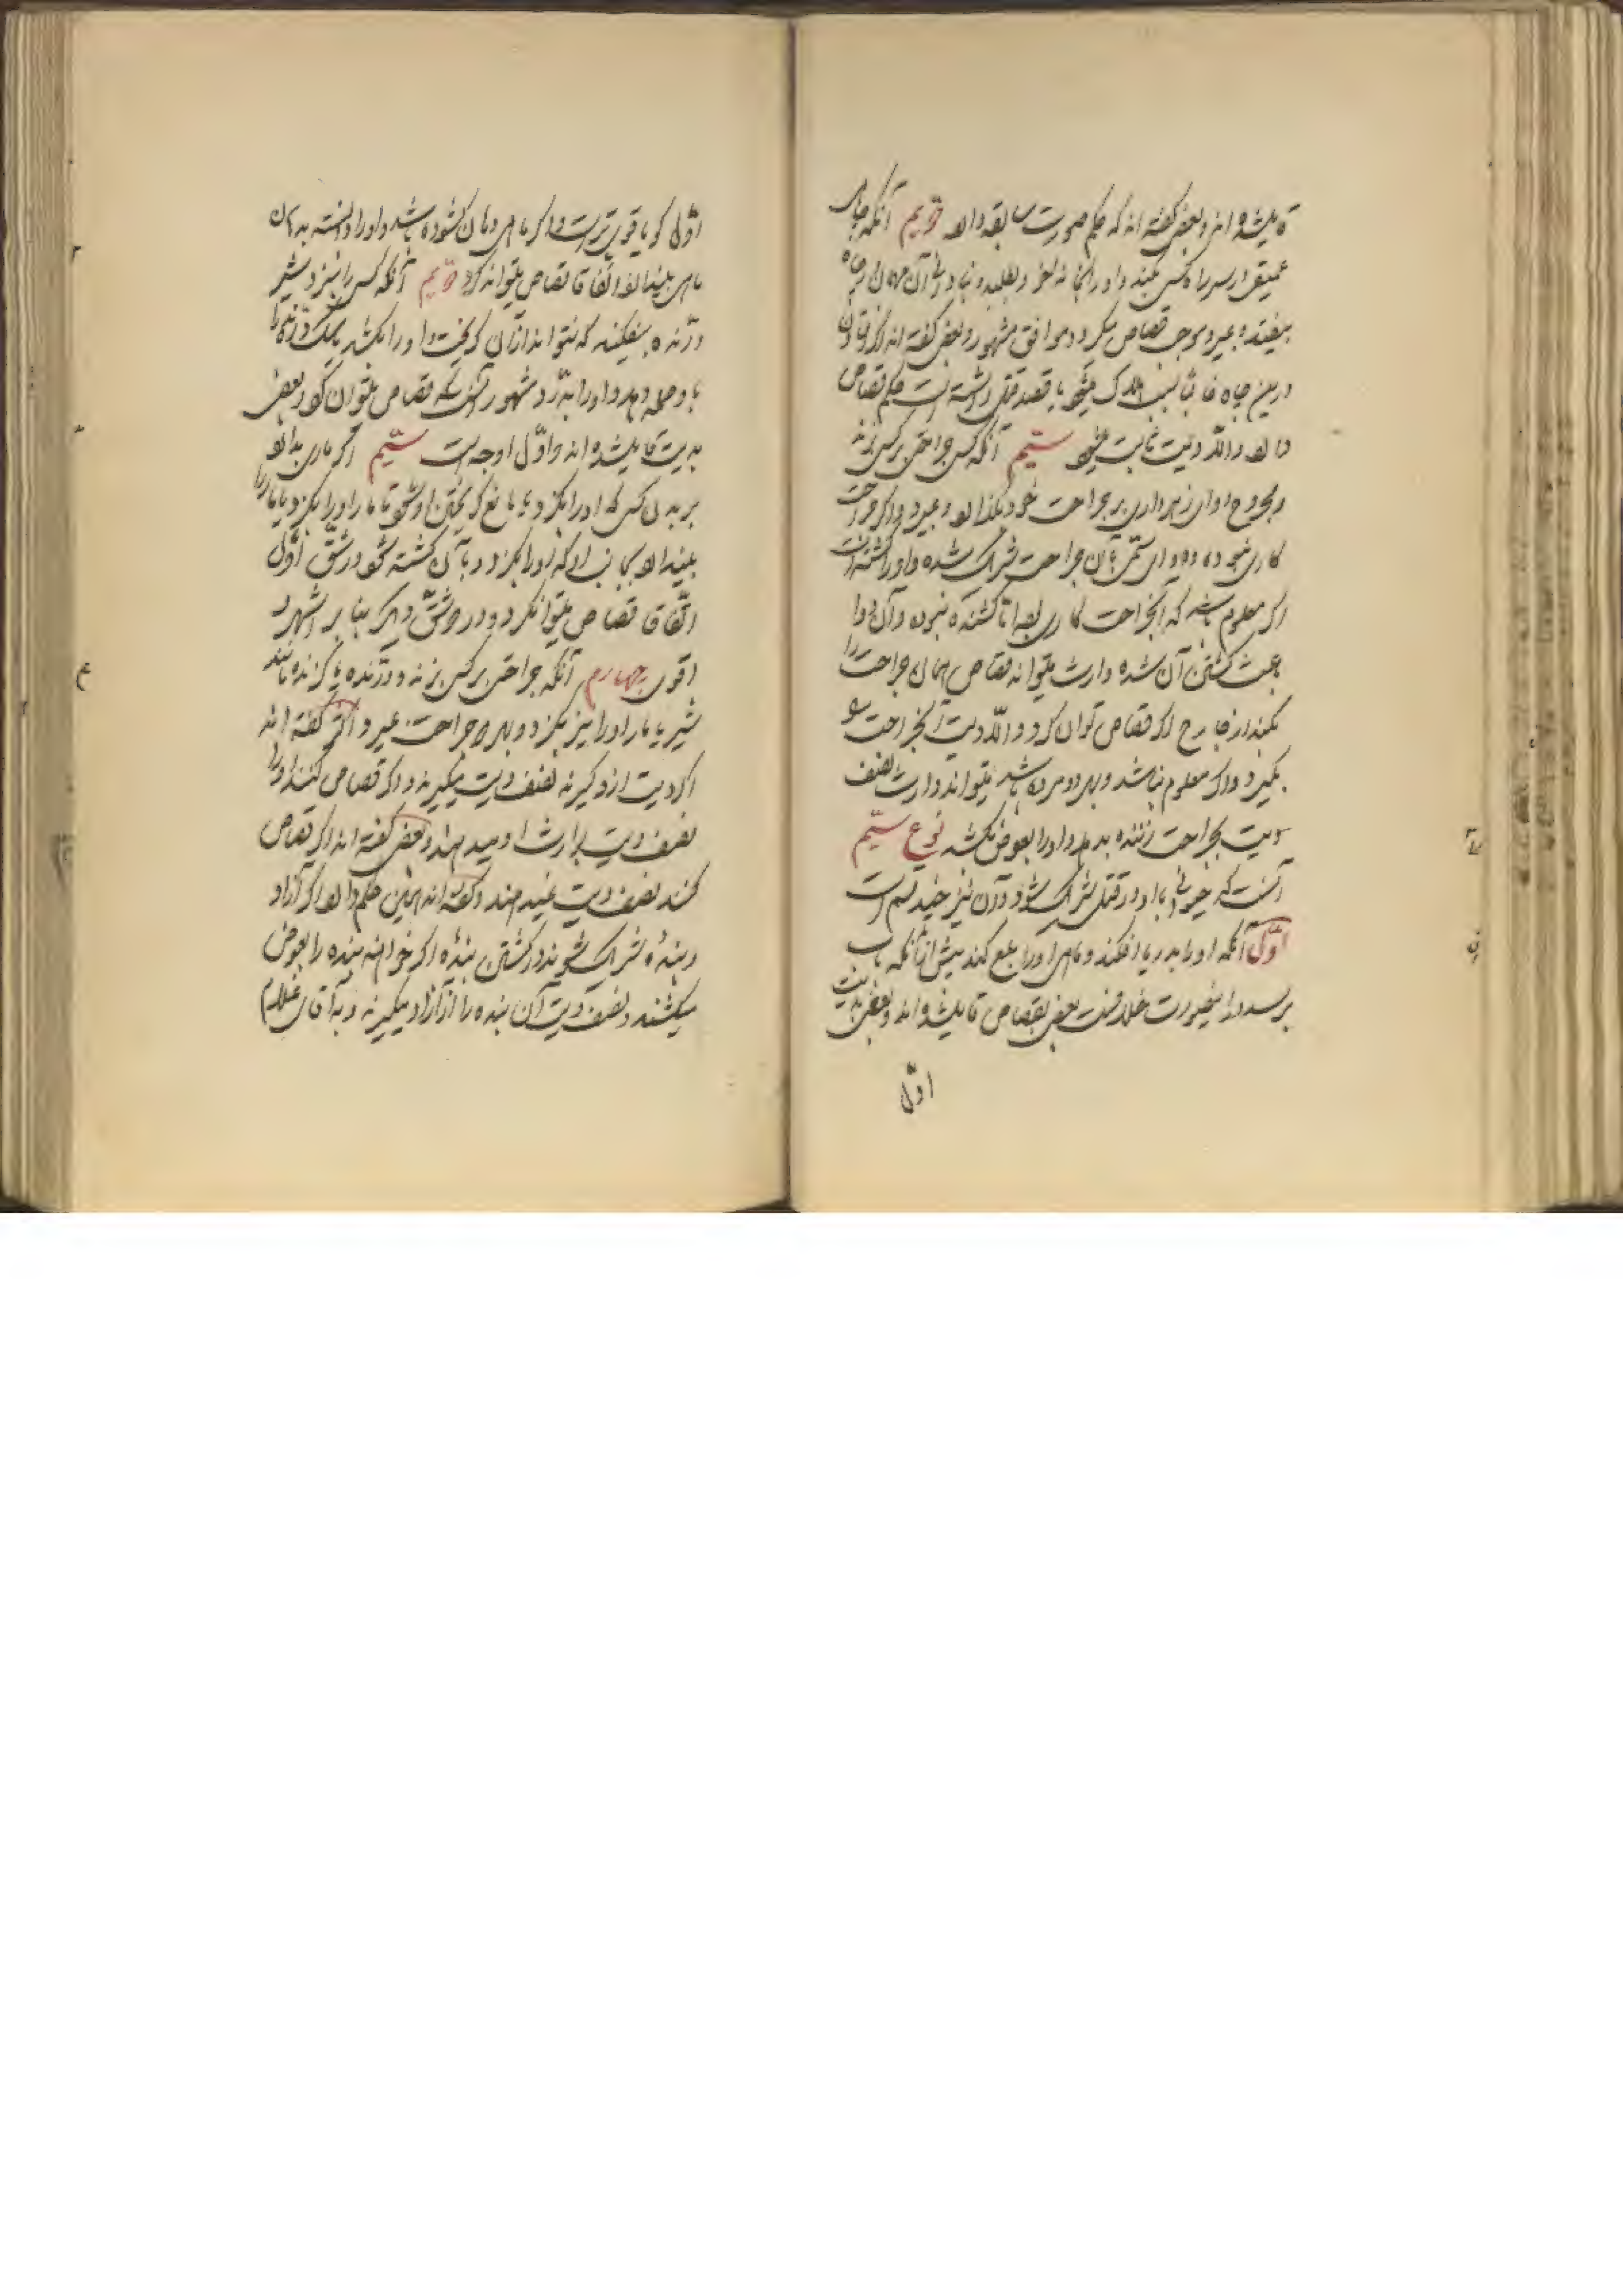 قایل شده‌اند و بعضی گفته‌اند که حکم صورت سابقه دارد دویم آنکه چاه
عمیقی در سر راه کسی بکند و او را بخانهٔ خود بطلبد و نادانی آن مهمان بچاه
بیفتد و بمیرد موجب قصاص میگردد موافق مشهور و بعضی گفته‌اند اگر افتادن
درین چاه غالباً سبب هلاک میشود یا قصد قتل داشته است حکم قصاص
دارد والّا دیت ثابت میشود سیّم آنکه کسی جراحتی بر کسی زند
و مجروح دوای زهرداری بر جراحت خود بگذارد و بمیرد و اگر جراحت
کاری نبوده و دوای سمّی با آن جراحت شریک شده و او را کشته است
اگر معلوم باشد که آن جراحت کاری بود امّا کشنده نبوده و آن دوا
باعث کشتن آن شده وارث میتواند قصاص همان جراحت را
بکند از جارح اگر قصاص توان کرد والّا دیت آن جراحت را
بگیرد و اگر معلوم نباشد و بهر دو مرده باشد میتواند وارث نصف
دیت بجراحت زننده بدهد و او را بعوض بکشد نوع سیّم
آنست که حیوانی با او در قتل شریک شود و در آن نیز چند قسم است
اوّل آنکه او را بدریا افکند و ماهی او را بلع کند پیش از آنکه بآب
برسد در اینصورت خلافست بعضی بقصاص قایل شده‌اند و بعضی بدیت
اوّل
اوّل گویا قوی‌تر است و اگر ماهی دهان گشوده باشد و او را دانسته بدهان
ماهی بیندازد اتفاقا قصاص میتواند کرد دویم آنکه کسی را نزد شیر
درّنده بیفکند که نتواند از آن گریخت و او را بکشد یا سگ درّنده را
باو حمله دهد و او را بدرّد مشهور آنست که قصاص میتوان کرد و بعضی
بدیت قایل شده‌اند و اوّل اوجه است سیّم اگر ماری بدارد
بر بدن کسی که او را بگزد و یا مانع گریختن او شود تا مار او را بگزد و یا مار را
بیندازد بجانب او که او را بگزد و بآن کشته شود در شقّ اوّل
اتّفاقا قصاص میتوان کرد و در دو شقّ دیگر بنا بر اشهر و
اقوی چهارم آنکه جراحتی بر کسی زند و درّنده یا گزنده مانند
شیر یا مار او را نیز بگزد و بهر دو جراحت بمیرد اکثر گفته‌اند
اگر دیت از او گیرند نصف دیت میگیرند و اگر قصاص کنند او را
نصف دیت بوارث او میدهند و بعضی گفته‌اند اگر قصاص
کنند نصف دیت نمیدهند و گفته‌اند همین حکم دارد اگر آزاد
و بندهٔ شریک شوند در کشتن بندهٔ اگر خواهند بنده را بعوض
میکشند و نصف دیت آن بنده را از آزاد میگیرند و بآقای غلام